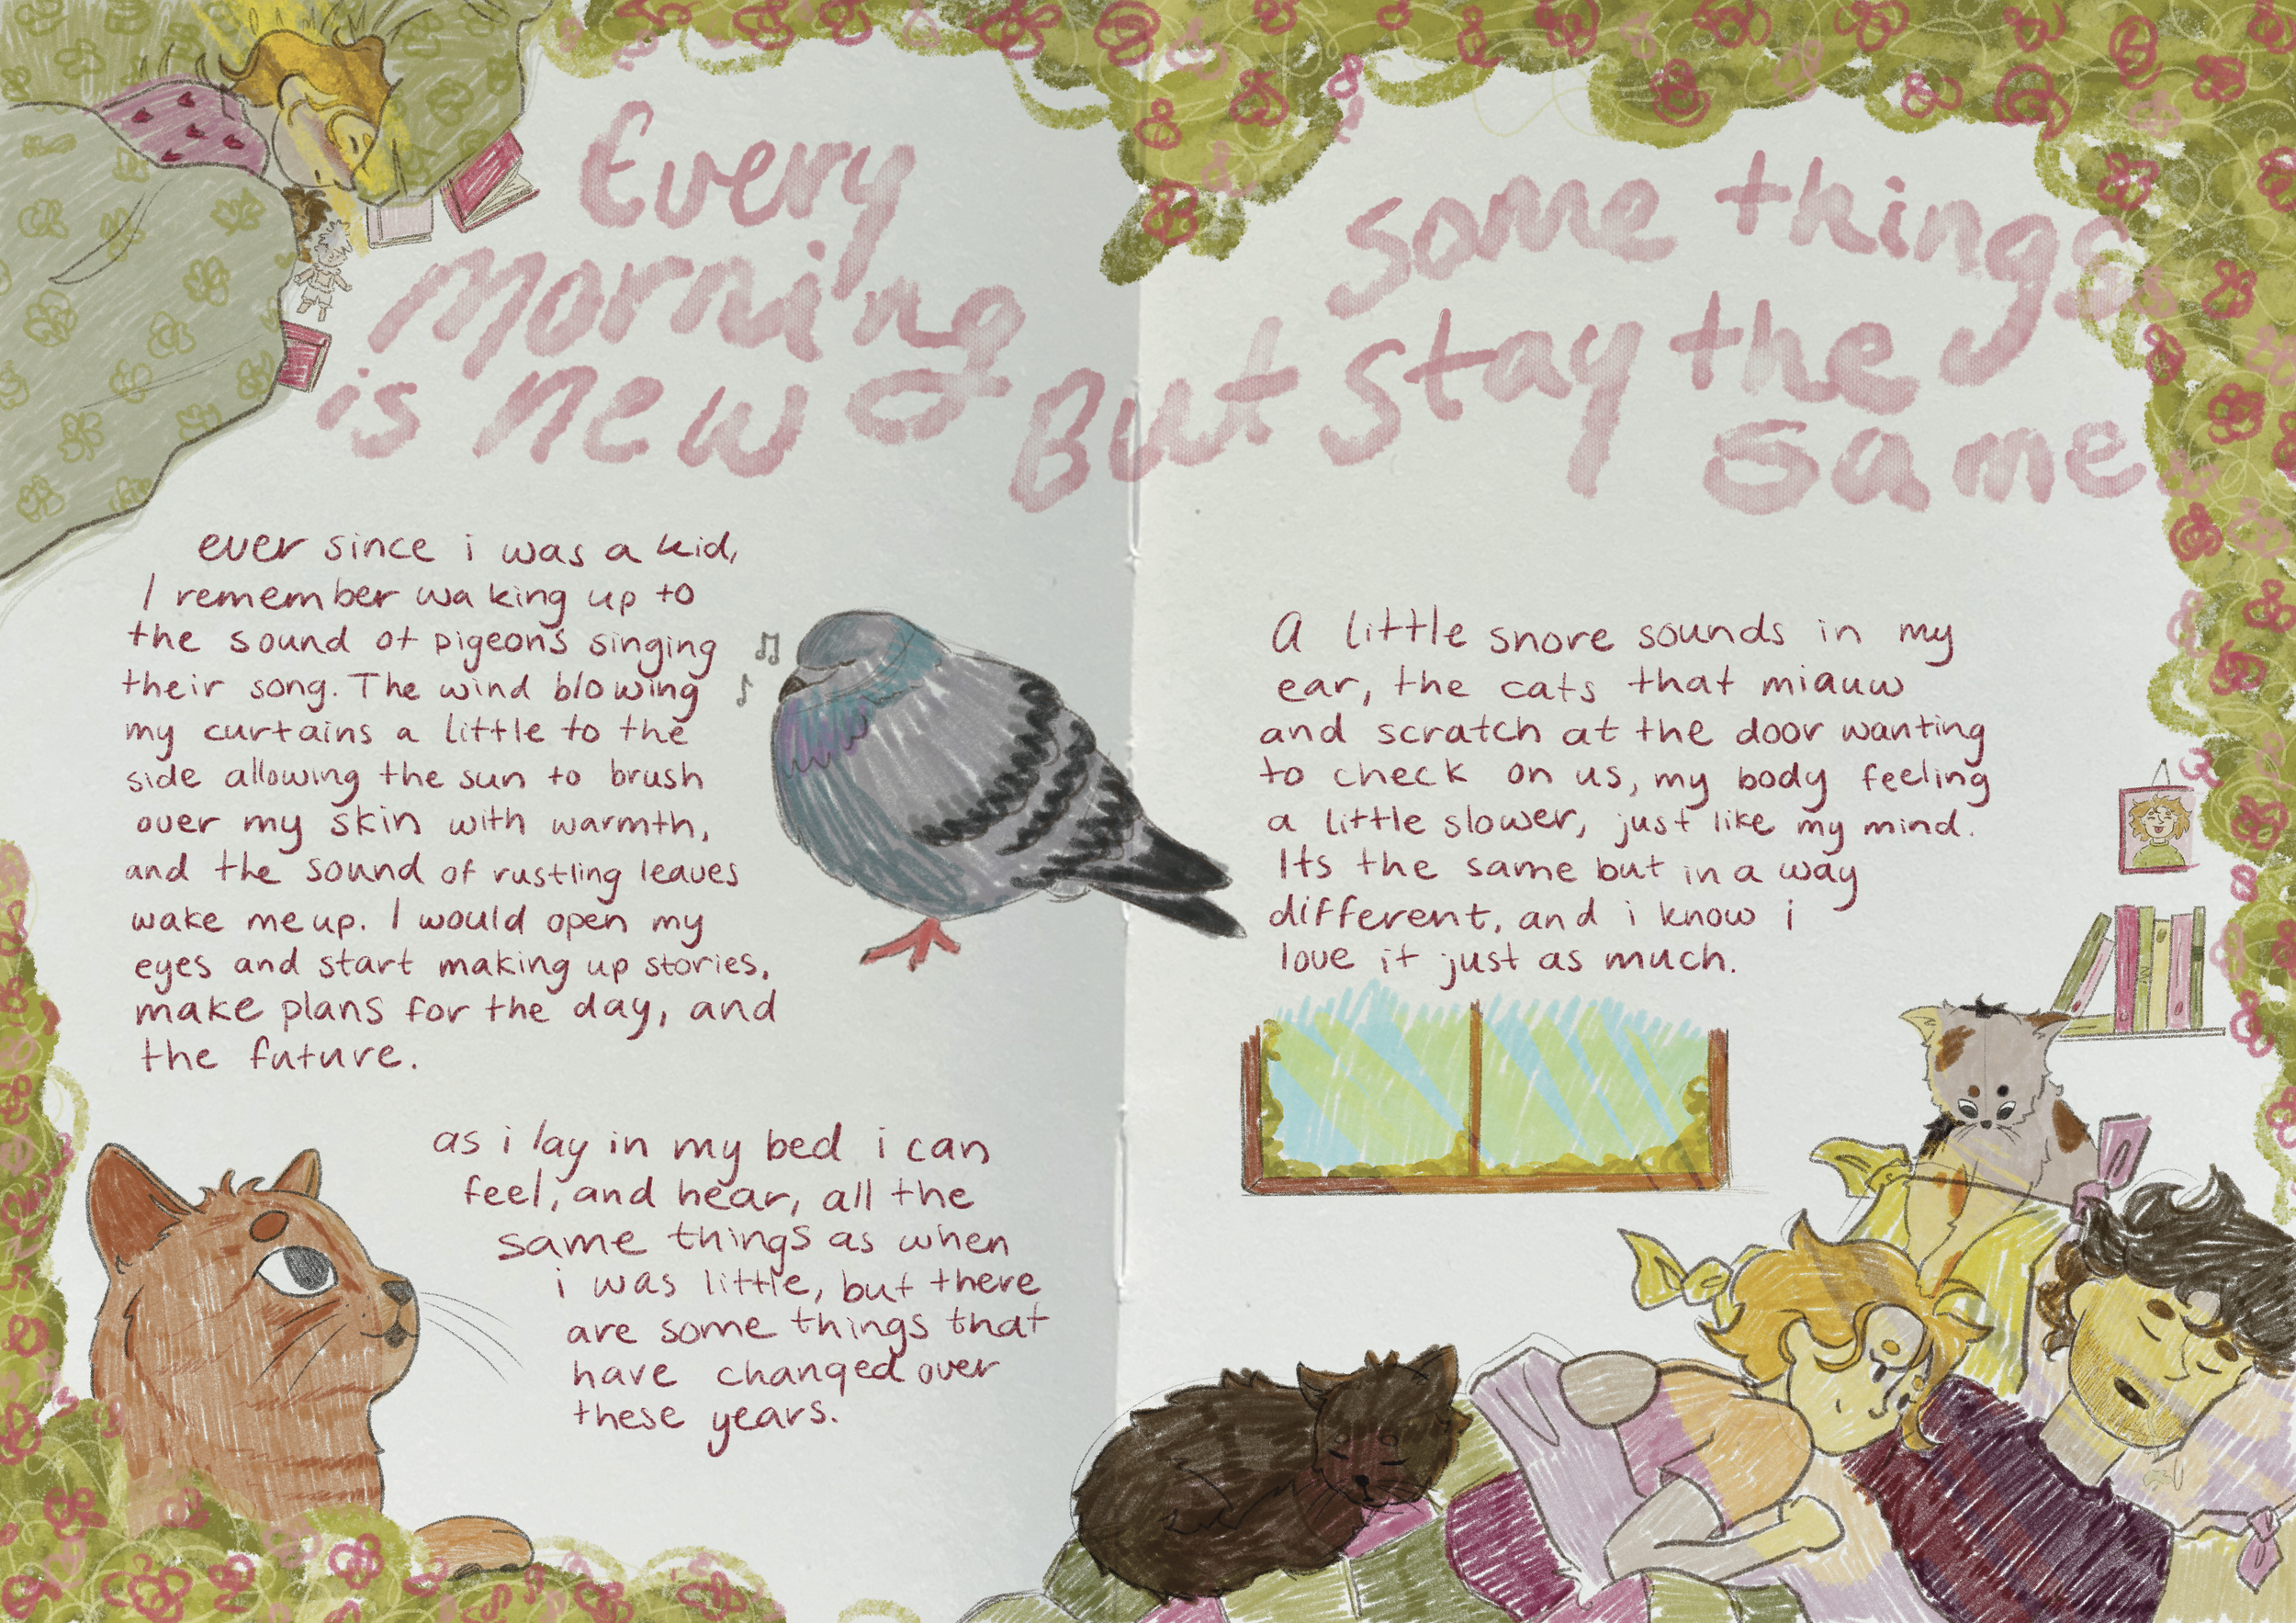 Every
morning
is new
But
some things
stay the
same
ever since i was a kid,
I remember waking up to
the sound of pigeons singing
their song. The wind blowing
my curtains a little to the
side allowing the sun to brush
over my skin with warmth,
and the sound of rustling leaves
wake me up. I would open my
eyes and start making up stories,
make plans for the day, and
the future.
as i lay in my bed i can
feel, and hear, all the
same things as when
i was little, but there
are some things that
have changed over
these years.
A little snore sounds in my
ear, the cats that miauw
and scratch at the door wanting
to check on us, my body feeling
a little slower, just like my mind.
Its the same but in a way
different, and i know i
love it just as much.